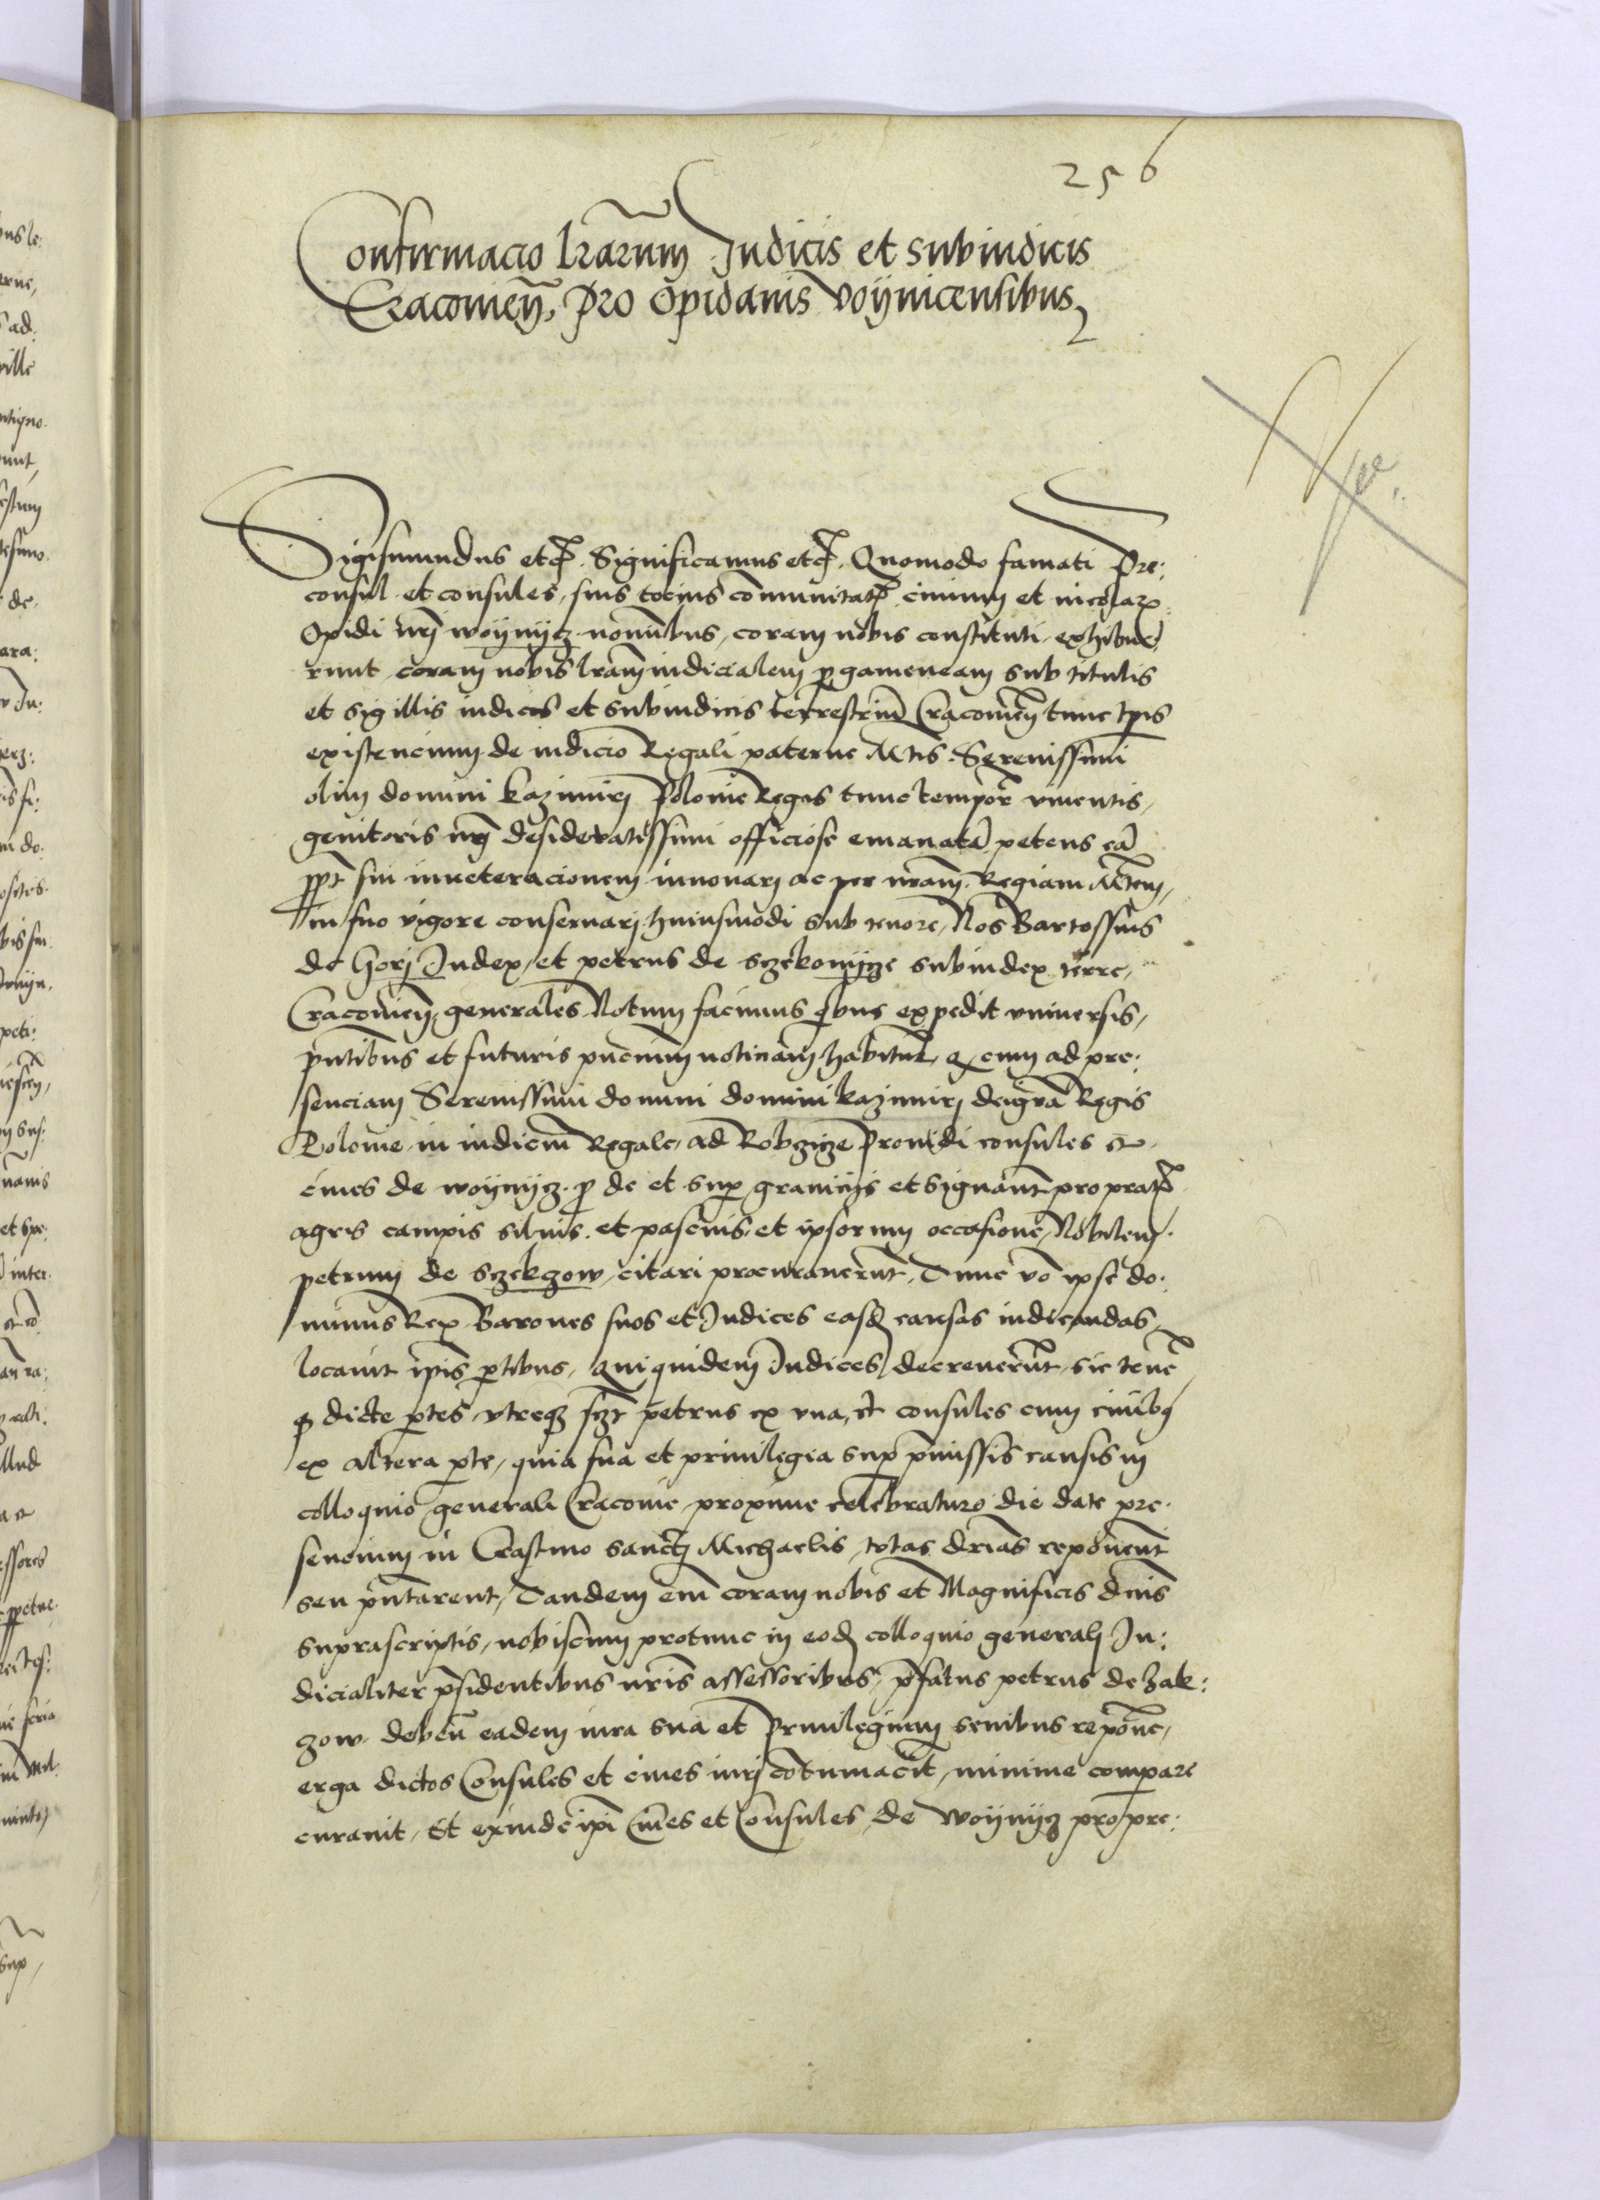 256
Confirmacio lrarum Iudicis et subiudicis
Cracovien. pro opidanis Voijnicensibus
Sigismundus etc. Significamus etc. Quomodo famati Pre:
consul et consules, suis totius comunitatis civium et incolarum
Opidi nri Woijnijcz nominibus, coram nobis constituti exhibue
runt coram nobis lram iudicialem pergameneam sub titulis
et sigillis iudicis et subiudicis terrestrium Cracovien tunc tpis
existencium de iudicio Regali paterne Mtis Serenissimi
olim domini Kazimirj Polonie Regis tunc tempore viventis,
genitoris nrj desideratissimi officiose emanatam petens eam
ppt sui inveteracionem innovarj ac per nram Regiam Mtem,
in suo vigore conservarj huiusmodi sub tenore, Nos Bartossius
de Gorj Iudex, et petrus de Sczekoczijcze subiudex terre,
Cracovien, generales Notum facimus quibus expedit universis,
pntibus et futuris pncium noticiam habitur, q cum ad pre:
senciam Serenissimi domini domini Kazimirj dei gra Regis
Polonie in iudicium Regale, ad Robczicze Providi consules et
cives de Woijnijcz pro de et super granicijs et signanter pro pratis
agris campis silvis et pascuis et ipsorum occasione, Nobilem
petrum de Sczekzow, citari procuraverunt, Tunc vo ipse do:
minus Rex Barones suos et Iudices easd causas iudicandas
locavit ipis ptibus, qui quidem Iudices decreverunt sic tene
q dicte ptes utreque scz petrus ex una, et consules cum civibus
ex altera pte, quia sua et privilegia sup pmissis causis in
colloquio generali Cracovie proxime celebraturo die date pre:
sencium in Crastino sanctj Michaelis, totas drias reponerent
seu pntarent, Tandem cum coram nobis et Magnificis dnis
suprascriptis, nobiscum protunc in eod colloquio generalj Iu:
dicialiter psidentibus nris assessoribus, pfatus petrus de Zak:
zow debeu eadem iura sua et Privilegium scribus repone,
erga dictos Consules et cives iurj cotumacit, minime compare
curavit, Et exinde ipi Cives et Consules de Woijnijcz pro pre: